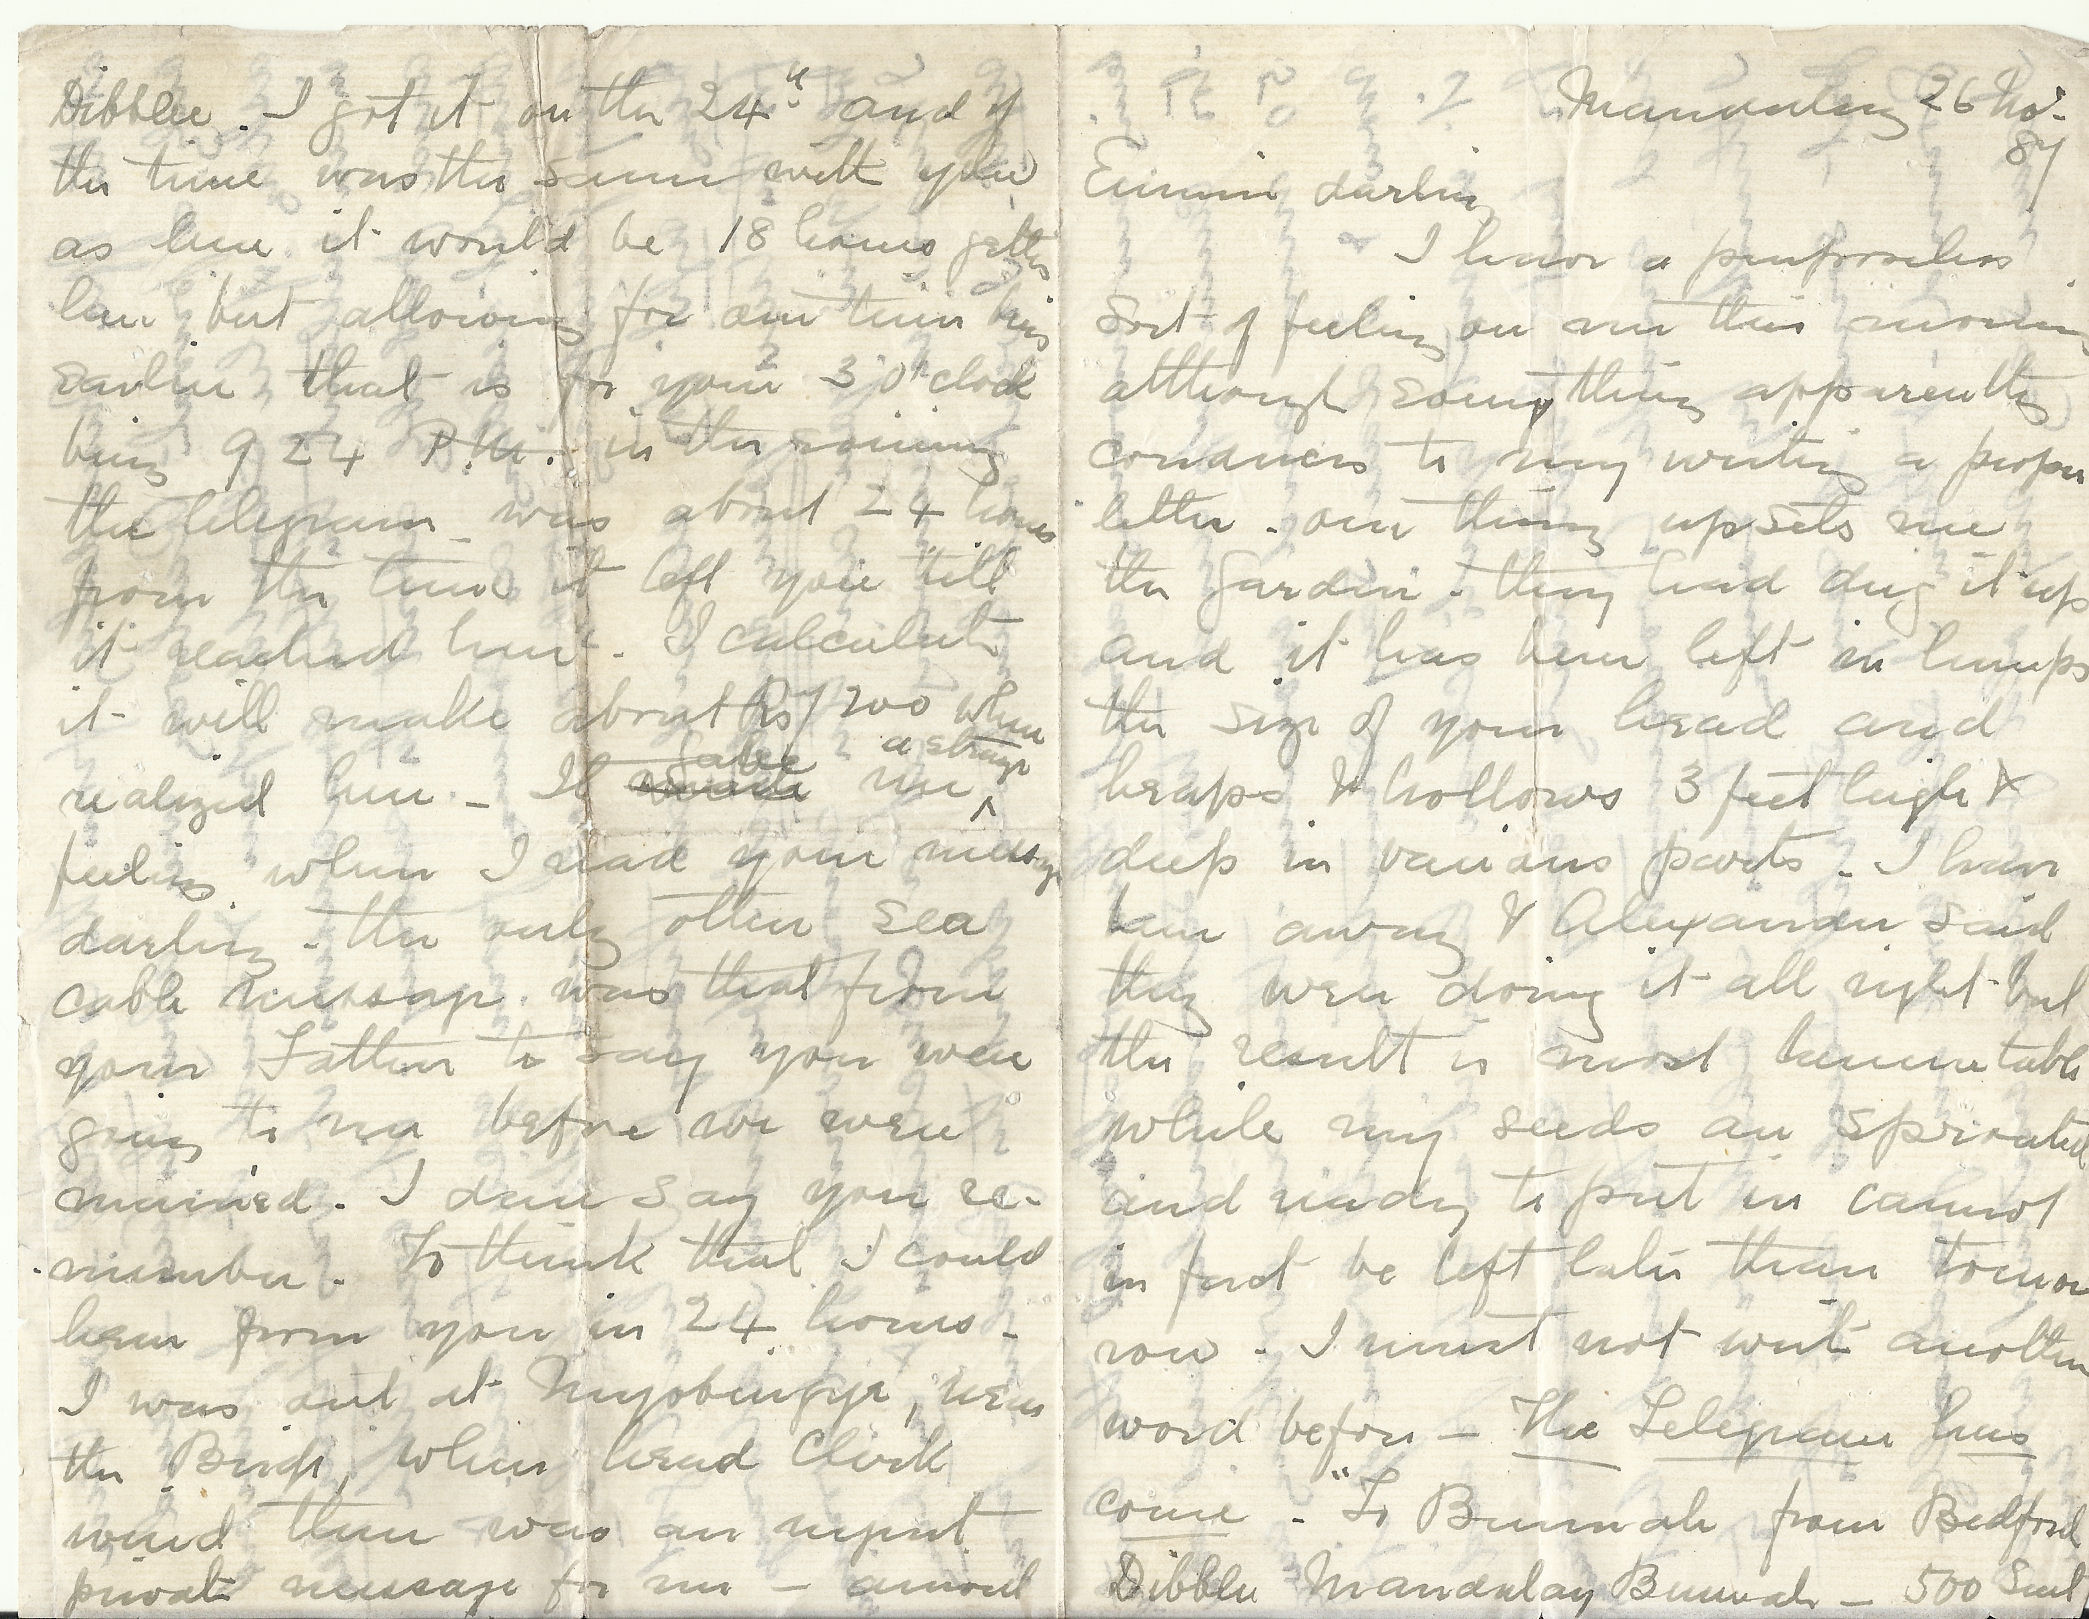 Mandalay 26 Nov.
87
Eimmie darling
I have a purposeless
sort of feeling on me this morning
although everything apparently
conduces to my writing a proper
letter. One thing upsets me
the Garden. they had dug it up
and it has been left in lumps
the size of your head and
heaps & hollows 3 feet high &
deep in various parts. I have
been away & Alexander said
they were doing it all right but
the result is most lamentable
while my seeds are sprouted
and ready to put in cannot
in fact be left later than tomor
row. I must not write another
word before — The Telegram has
come. "To Burmah from Bedford
Dibblee Mandalay Burmah — 500 Sent
Dibblee. I got it on the 24th and if
the time was the same with you
as here it would be 18 hours getting
here but allowing for our time being
earlier that is for your 3 o'clock
being 9 24 P.M. in the evening
the telegram was about 24 hours
from the time it left you till
it reached here. I calculate
it will make about Rs/7200 when
realized here. — It gave me a strange
feeling when I read your message
darling. the only other sea
cable message was that from
your Father to say you were
going to me before we were
married. I dare say you re-
member. To think that I could
hear from you in 24 hours —
I was out at Myobingyi, near
the Bridge, when head Clerk
wired there was an urgent
private message for me — around